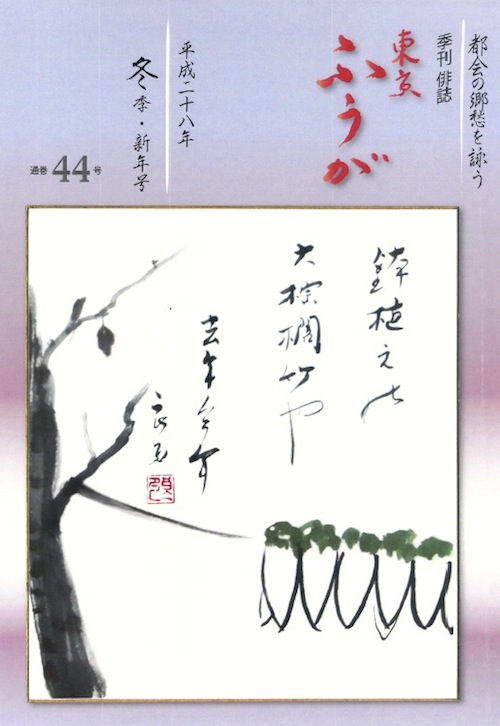 都会の郷愁を詠う
季刊 俳誌
東京
ふうが
平成二十八年
冬季・新年号
通巻 44 号
鉢植えの
大棕櫚竹や
去年今年